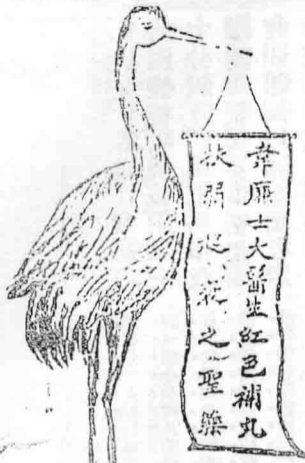 韋廉士大醫生紅色補丸
扶弱起衰之聖藥